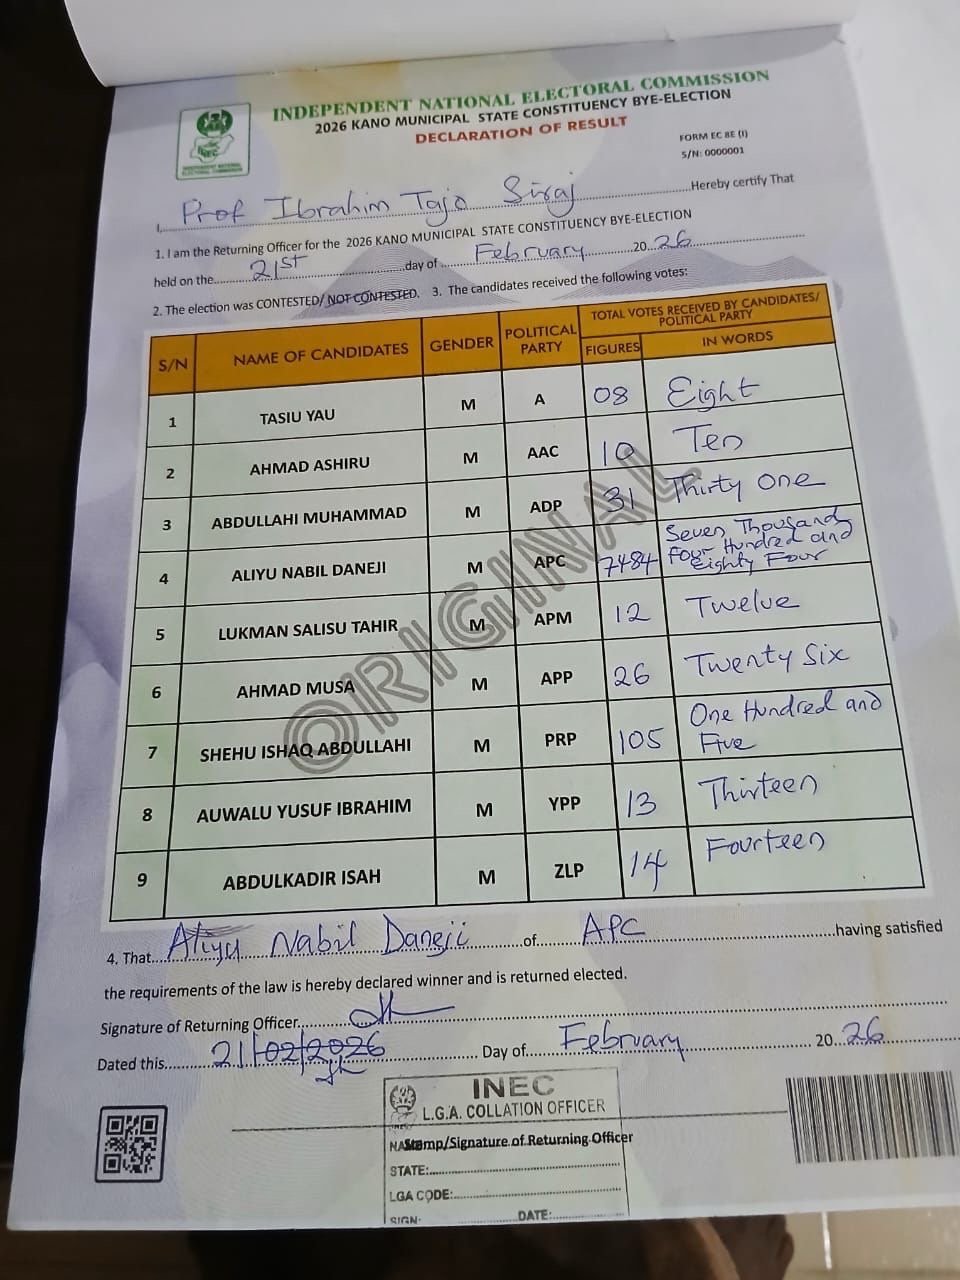 INDEPENDENT NATIONAL ELECTORAL COMMISSION
2026 KANO MUNICIPAL STATE CONSTITUENCY BYE-ELECTION
DECLARATION OF RESULT
FORM EC 8E (I)
S/N: 0000001
INEC
INDEPENDENT NATIONAL
ELECTORAL COMMISSION
I, Prof Ibrahim Tajo Siraj Hereby certify That
1. I am the Returning Officer for the 2026 KANO MUNICIPAL STATE CONSTITUENCY BYE-ELECTION
held on the 21st day of February 2026
2. The election was CONTESTED/ NOT CONTESTED. 3. The candidates received the following votes:
S/N NAME OF CANDIDATES GENDER POLITICAL PARTY TOTAL VOTES RECEIVED BY CANDIDATES/ POLITICAL PARTY
FIGURES IN WORDS
1 TASIU YAU M A 08 Eight
2 AHMAD ASHIRU M AAC 10 Ten
3 ABDULLAHI MUHAMMAD M ADP 31 Thirty One
4 ALIYU NABIL DANEJI M APC 7484 Seven Thousand Four Hundred and Eighty Four
5 LUKMAN SALISU TAHIR M APM 12 Twelve
6 AHMAD MUSA M APP 26 Twenty Six
7 SHEHU ISHAQ ABDULLAHI M PRP 105 One Hundred and Five
8 AUWALU YUSUF IBRAHIM M YPP 13 Thirteen
9 ABDULKADIR ISAH M ZLP 14 Fourteen
ORIGINAL
4. That Aliyu Nabil Daneji of APC having satisfied
the requirements of the law is hereby declared winner and is returned elected.
Signature of Returning Officer
Dated this 21/02/2026 Day of February 2026
INEC
L.G.A. COLLATION OFFICER
Stamp/Signature of Returning Officer
STATE:
LGA CODE:
SIGN: DATE: